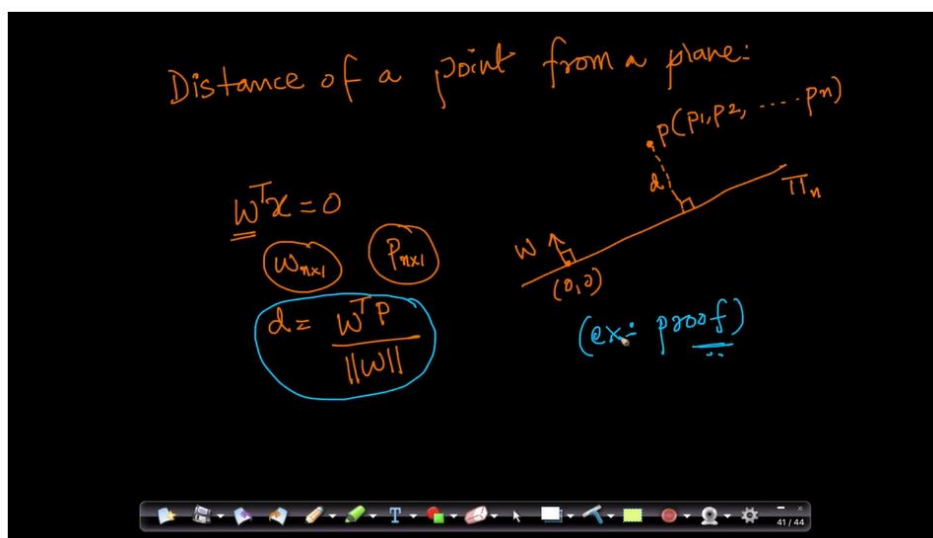 Distance of a point from a plane:
P(P1, P2, ..... Pn)
d
πn
wᵀx = 0
w
wn×1
Pn×1
(0,0)
d = wᵀP
||w||
(ex: proof)
T
41 / 44